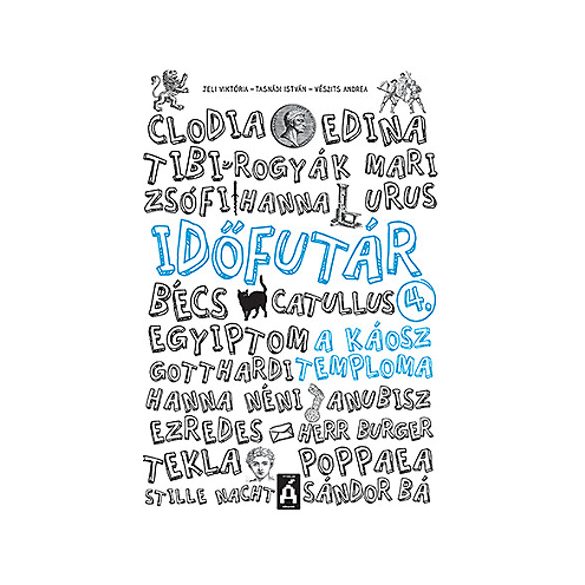 JELI VIKTÓRIA – TASNÁDI ISTVÁN – VÉSZITS ANDREA
CLODIA EDINA
TIBI-ROGYÁK MARI
ZSÓFI HANNA URUS
IDŐFUTÁR
BÉCS CATULLUS 4.
EGYIPTOM A KÁOSZ
GOTTHARDI TEMPLOMA
HANNA NÉNI ANUBISZ
EZREDES HERR BURGER
TEKLA POPPAEA
STILLE NACHT Á SÁNDOR BÁ